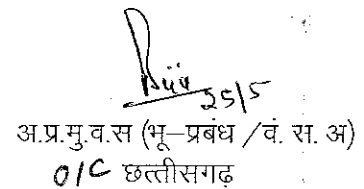 25/5
अ.प्र.मु.व.स (भू–प्रबंध / वं. सं. अ)
O/C छत्तीसगढ़